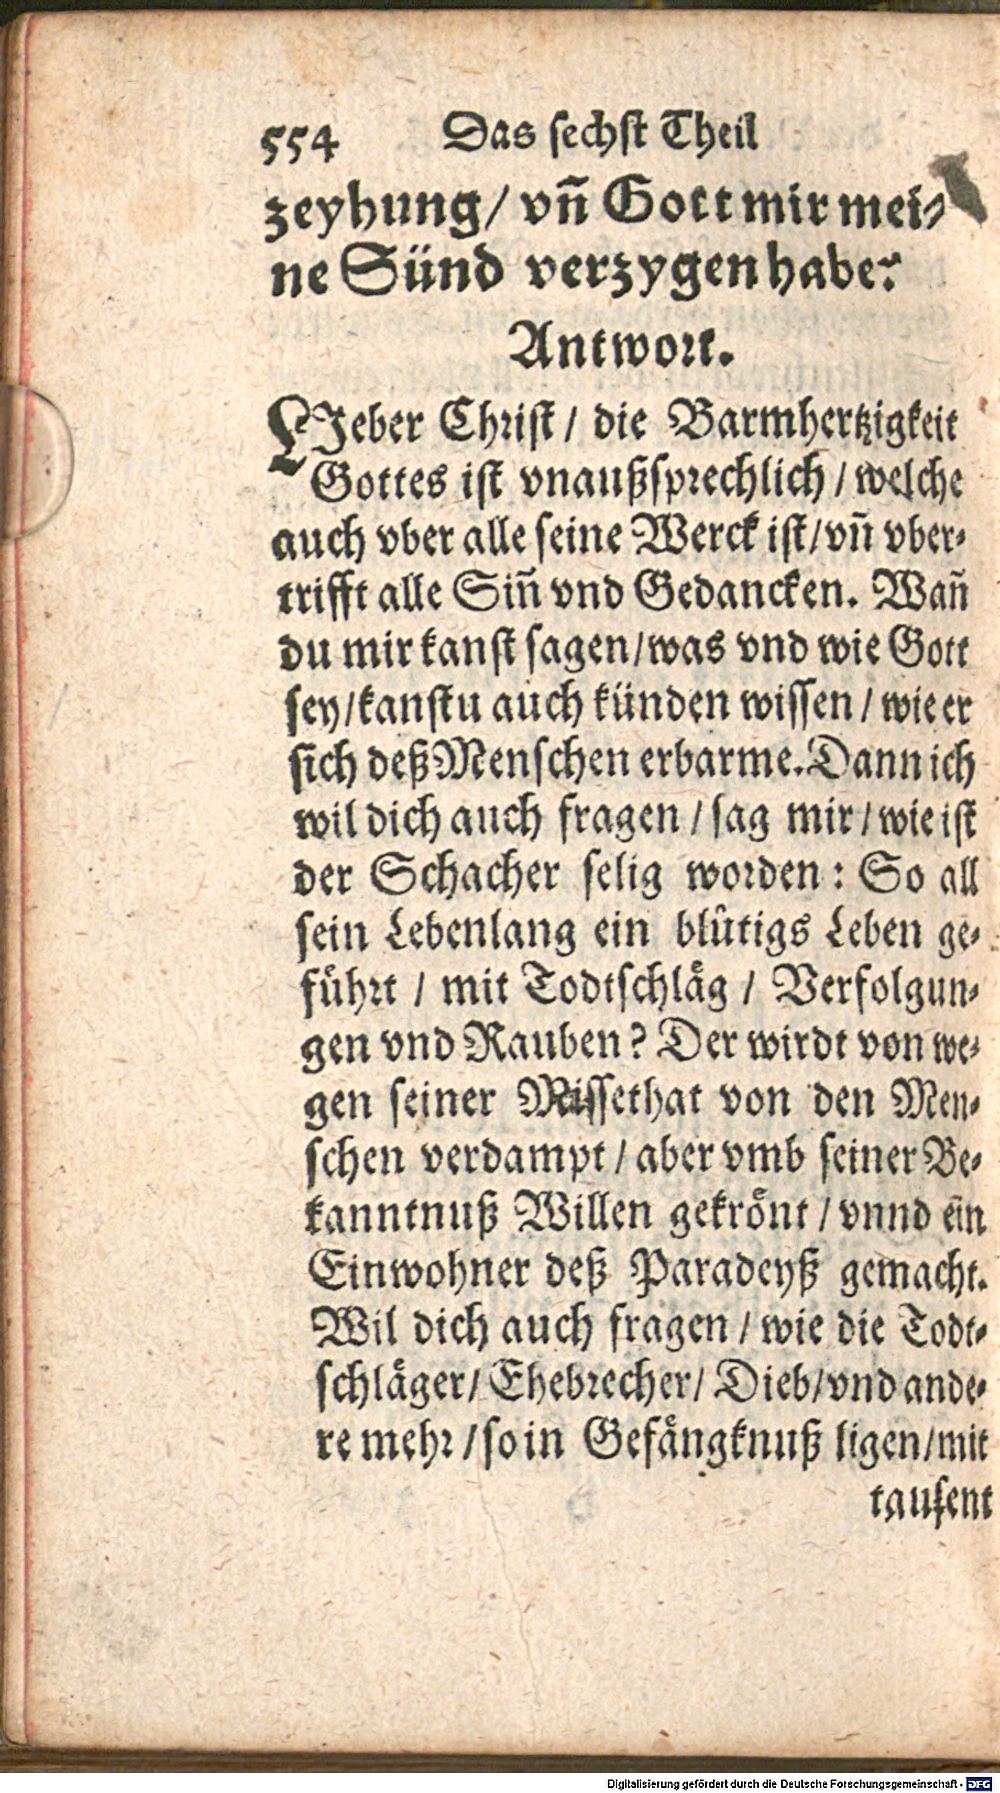 554 Das sechst Theil
zeyhung / vñ Gott mir mei-
ne Sünd verzygen habe?
Antwort.
LJeber Christ / die Barmhertzigkeit
Gottes ist vnaußsprechlich / welche
auch vber alle seine Werck ist / vñ vber-
trifft alle Siñ vnd Gedancken. Wañ
du mir kanst sagen / was vnd wie Gott
sey / kanstu auch künden wissen / wie er
sich deß Menschen erbarme. Dann ich
wil dich auch fragen / sag mir / wie ist
der Schacher selig worden: So all
sein Lebenlang ein blůtigs Leben ge-
führt / mit Todtschläg / Verfolgun-
gen vnd Rauben? Der wirdt von we-
gen seiner Missethat von den Men-
schen verdampt / aber vmb seiner Be-
kanntnuß Willen gekrönt / vnnd ein
Einwohner deß Paradeyß gemacht.
Wil dich auch fragen / wie die Todt-
schläger / Ehebrecher / Dieb / vnd ande-
re mehr / so in Gefängknuß ligen / mit
tausent
Digitalisierung gefördert durch die Deutsche Forschungsgemeinschaft - DFG